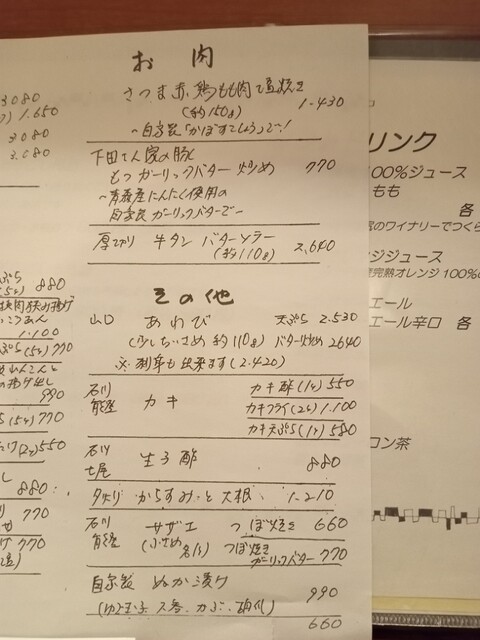 お肉
さつま赤鶏もも肉の直焼き
(約150g) 1.430
〜自家製「かぼすこしょう」で!
下田さん家の豚
もつガーリックバター炒め 770
〜青森産にんにく使用の
自家製ガーリックバターで〜
厚切り 牛タン バターソテー
(約110g) 2,640
その他
山口 あわび 天ぷら 2.530
(少し小さめ 約110g) バター炒め 2640
※刺身も出来ます(2.420)
石川
能登 カキ
カキ酢(1ヶ) 550
カキフライ(2ヶ) 1.100
カキ天ぷら(1ヶ) 580
石川
七尾 生子酢 880
からすみと大根 1-210
石川
能登 サザエ つぼ焼き 660
(小さめ つぼ焼き
ガーリックバター 770
自家製 ぬか漬け 990
660
3080
1.650
3080
3.080
ぷら
880
挟肉挟み揚げ
1-100
ぷら(5ヶ) 770
990
(5ヶ) 770
(2ヶ) 550
880
770
770
リンク
100%ジュース
もも
各
のワイナリーでつくら
ジジュース
完熟オレンジ 100%
エール
エール辛口 各
ロン茶